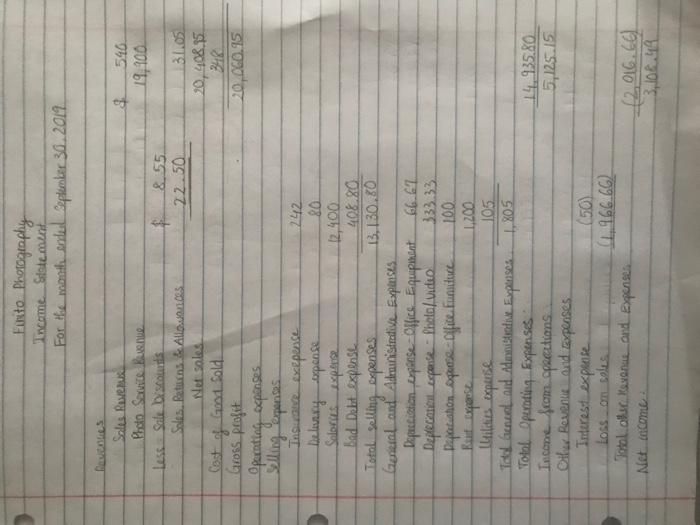 Finito Photography
Income Statement
For the month ended September 30, 2019
Revenues
Sales Revenue $ 540
Photo Service Revenue 19,900
Less: Sale Discounts $ 8.55
Sales Returns & Allowances 22.50 31.05
Net sales 20,408.95
Cost of Good Sold 348
Gross profit 20,060.95
Operating expenses
Selling expenses
Insurance exepense 242
Delivery expense 80
Salaries expense 12,400
Bad Debt expense 408.80
Total selling expenses 13,130.80
General and Administrative Expenses
Depreciation expense - Office Equipment 66.67
Depreciation expense - Photo/Video 333.33
Depreciation expense - Office Furniture 100
Rent expense 1,200
Utilities expense 105
Total General and Administrative Expenses 1,805
Total Operating Expenses 14,935.80
Income from operations 5,125.15
Other Revenue and expenses
Interest expense (50)
Loss on sales (1,966.66)
Total other Revenue and Expenses (2,016.66)
Net income 3,108.49